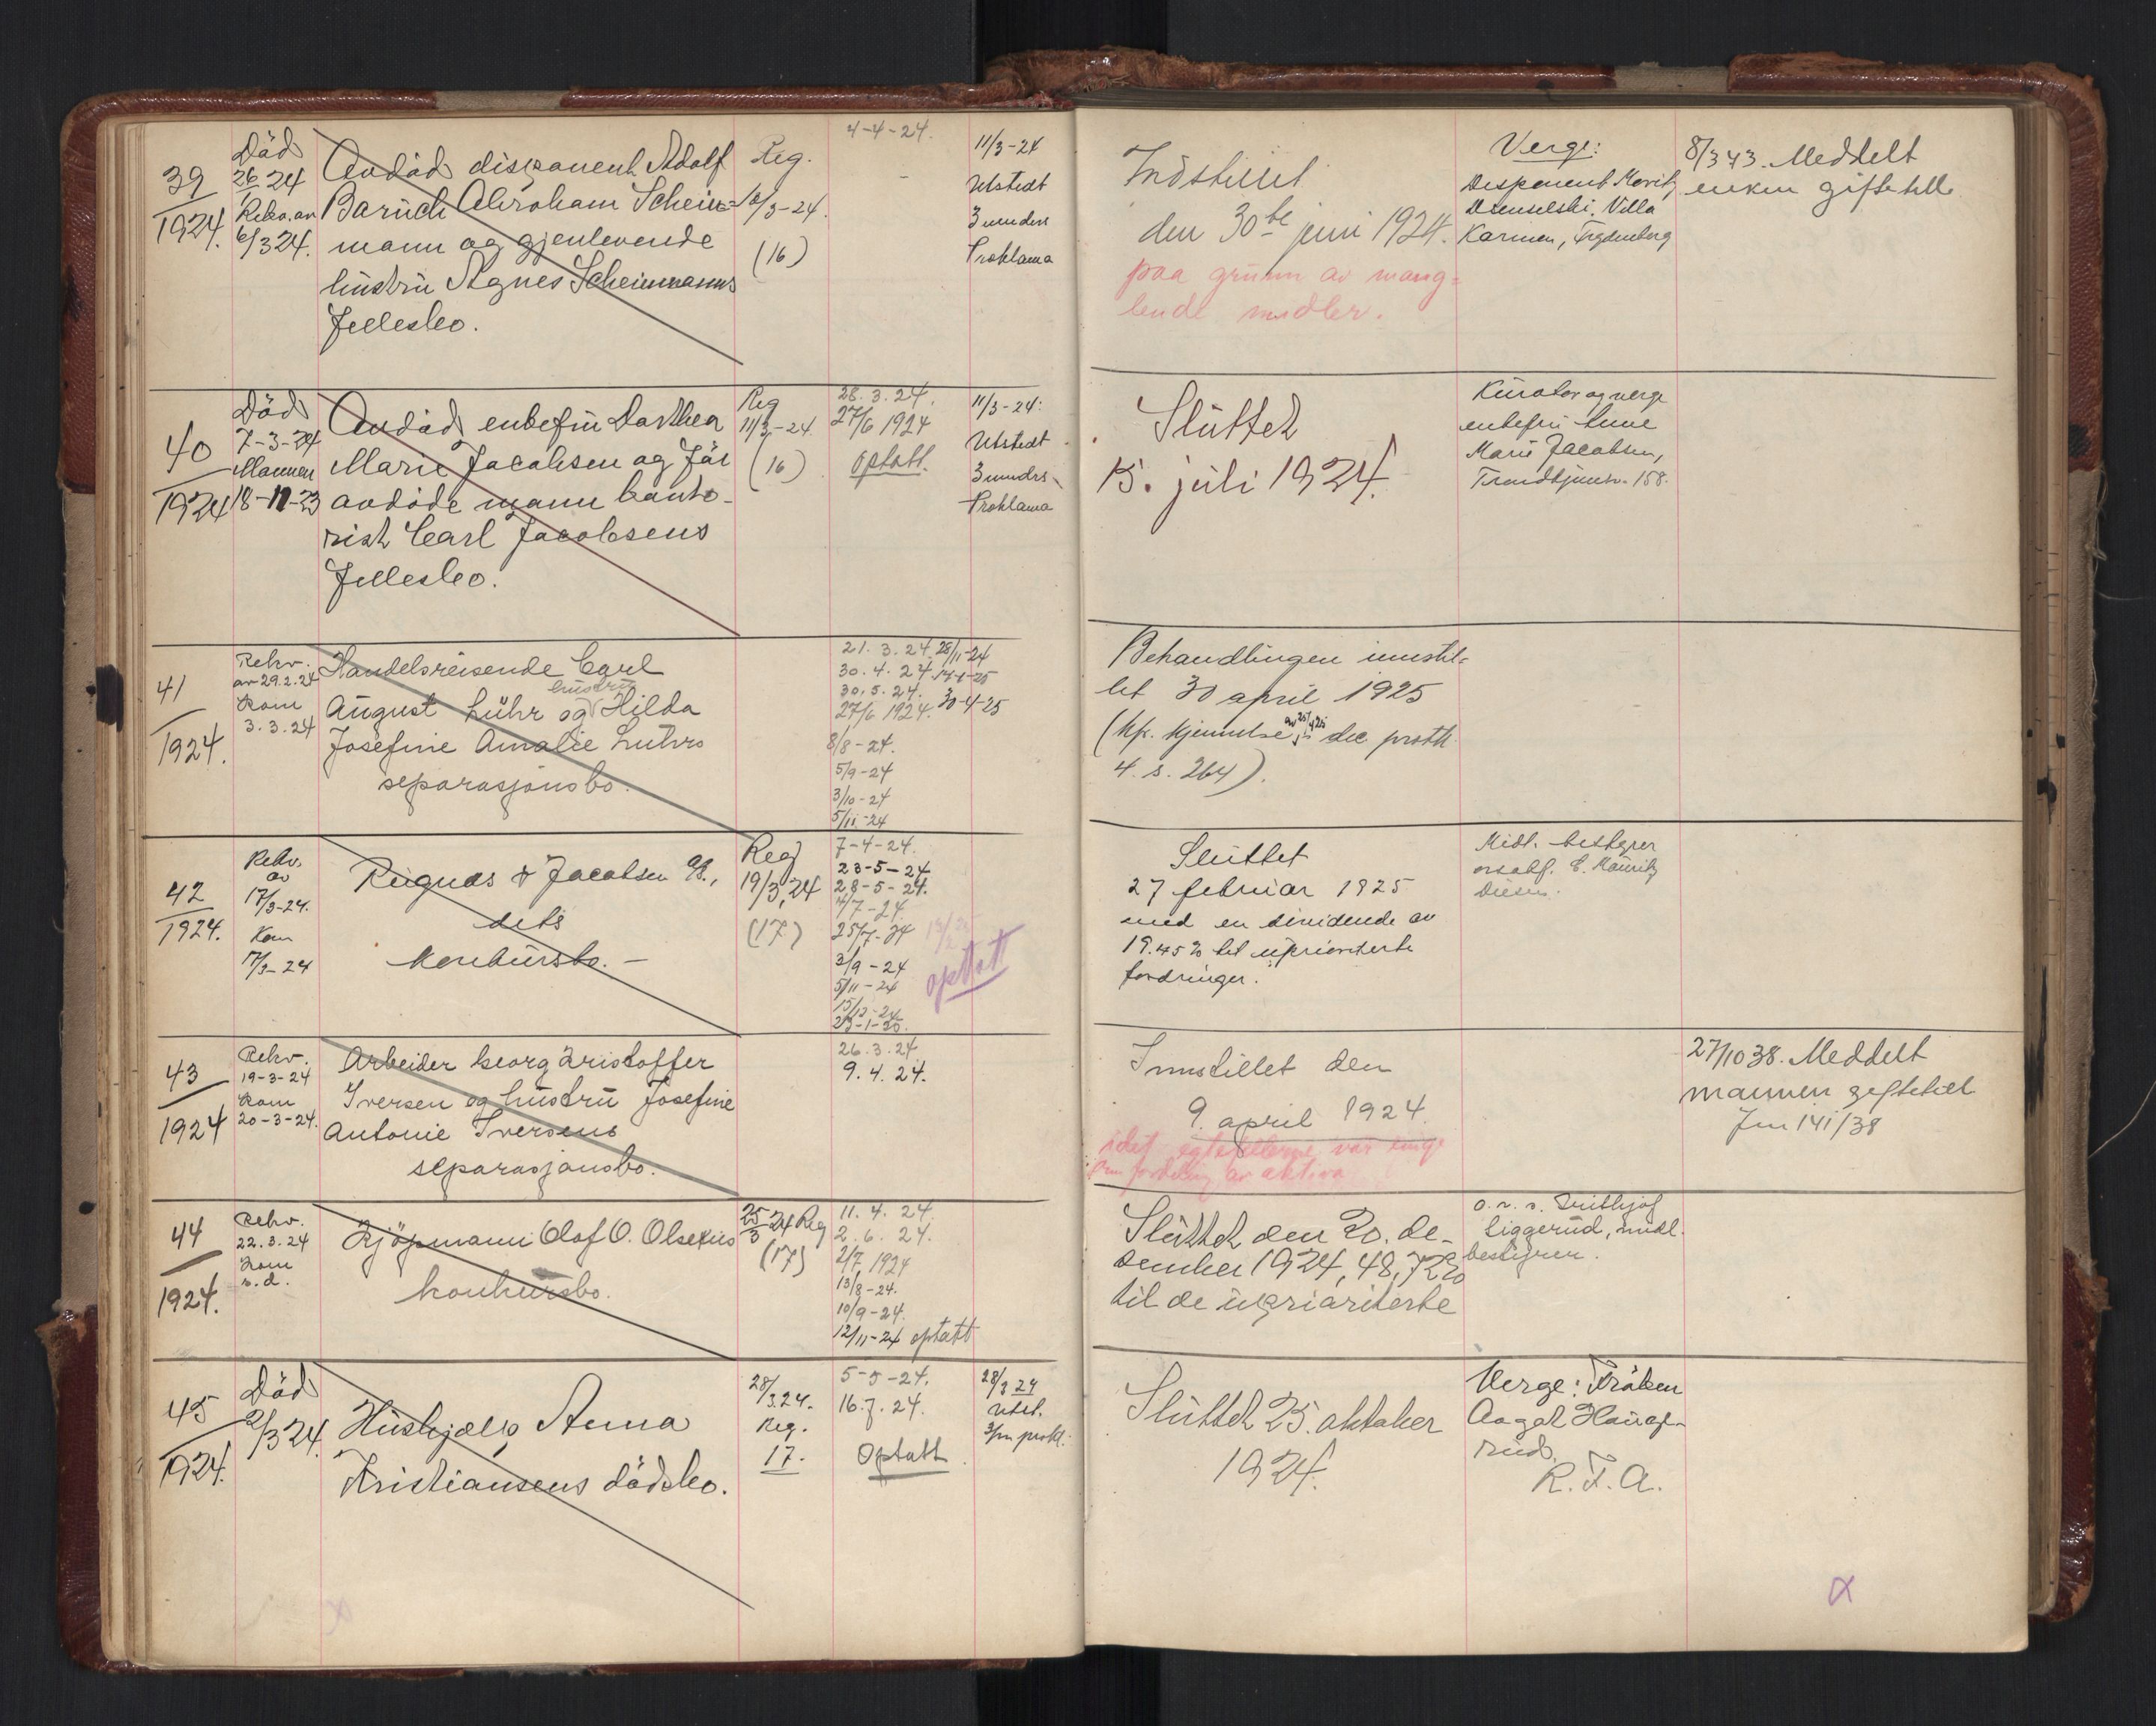 39
1924.
Död
26/1 24
Rekv. av
6/3 24.
Avdöd disponent Adolf
Baruch Abraham Schein=
mann og gjenlevende
hustru Agnes Scheinmanns
Fellesbo.
Reg.
10/3-24.
(16)
4-4-24.
11/3-24
Utstedt
3 mndrs
Proklama
Indstillet
den 30te juni 1924.
paa grunn av mang=
lende midler.
Verge:
Disponent Moritz
Villa
Karmen,
8/3 43. Meddelt
enken giftetill.
40
1924
Död
7-3-24
Mannen
18-11-23
Avdöd enkefru Dorthea
Marie Jacobsen og før
avdöde mann konto-
rist Carl Jacobsens
Fellesbo.
Reg
11/3-24.
(16)
28.3.24.
27/6 1924
Optatt.
11/3-24.
Utstedt
3 mndrs
Proklama
Sluttet
15. juli 1924.
Kurator og verge
enkefru Anne
Marie Jacobsen,
Trondhjemsv. 158.
41
1924.
Rekv.
av 29.2.24
Kom
3.3.24
Handelsreisende Carl
hustru
August Lühr og Hilda
Josefine Amalie Lührs
separasjonsbo.
21.3.24. 28/11-24
30.4.24.
30.5.24.
27/6 1924. 30-4-25
8/8-24.
5/9-24
3/10-24
5/11-24
Behandlingen innstil=
let 30 april 1925
(kfr. kjennelse av 25/4 25 i dec. protk.
4. s. 264).
42
1924.
Rekv.
av
17/3-24.
Kom
17/3-24
Rugnas & Jacobsen A/S.,
dets
konkursbo. -
Reg
19/3,24
(17)
7-4-24.
23-5-24
28-5-24.
4/7-24.
25/7-24
3/9-24
5/11-24
15/12-24
23-1-25.
optatt
Sluttet
27 februar 1925
med en dividende av
19.45% til uprioriterte
fordringer.
Midl. bestyrer
orsakf. E. Mauritz
Diesen.
43
1924
Rekv.
19-3-24
Kom
20-3-24.
Arbeider Georg Kristoffer
Iversen og hustru Josefine
Antonie Iversens
separasjonsbo.
26.3.24.
9.4.24.
Innstillet den
9. april 1924.
idet egtefellerne var enige
om fordeling av aktiva.
27/10 38. Meddelt
mannen giftetill.
Jnr 141/38
44
1924.
Rekv.
22.3.24
Kom
s.d.
Kjöpmann Olaf O. Olsens
konkursbo.
25/3 24 Reg
(17)
11.4.24.
2.6.24.
2/7 1924
13/8-24.
10/9-24.
12/11-24 optatt
Sluttet den 20. de-
sember 1924, 48,72%
til de uprioriterte
o.r.s. Frithjof
Liggerud, midl.
bestyrer.
45
1924.
Död
2/3 24.
Hushjelp Anna
Kristiansens dödsbo.
28/3 24.
Reg.
17.
5-5-24.
16.7.24.
Optatt
28/3 24
Utst.
3/m prokl.
Sluttet 25. oktober
1924.
Verge: Fröken
Aagot Haug-
rud.
R.F.A.